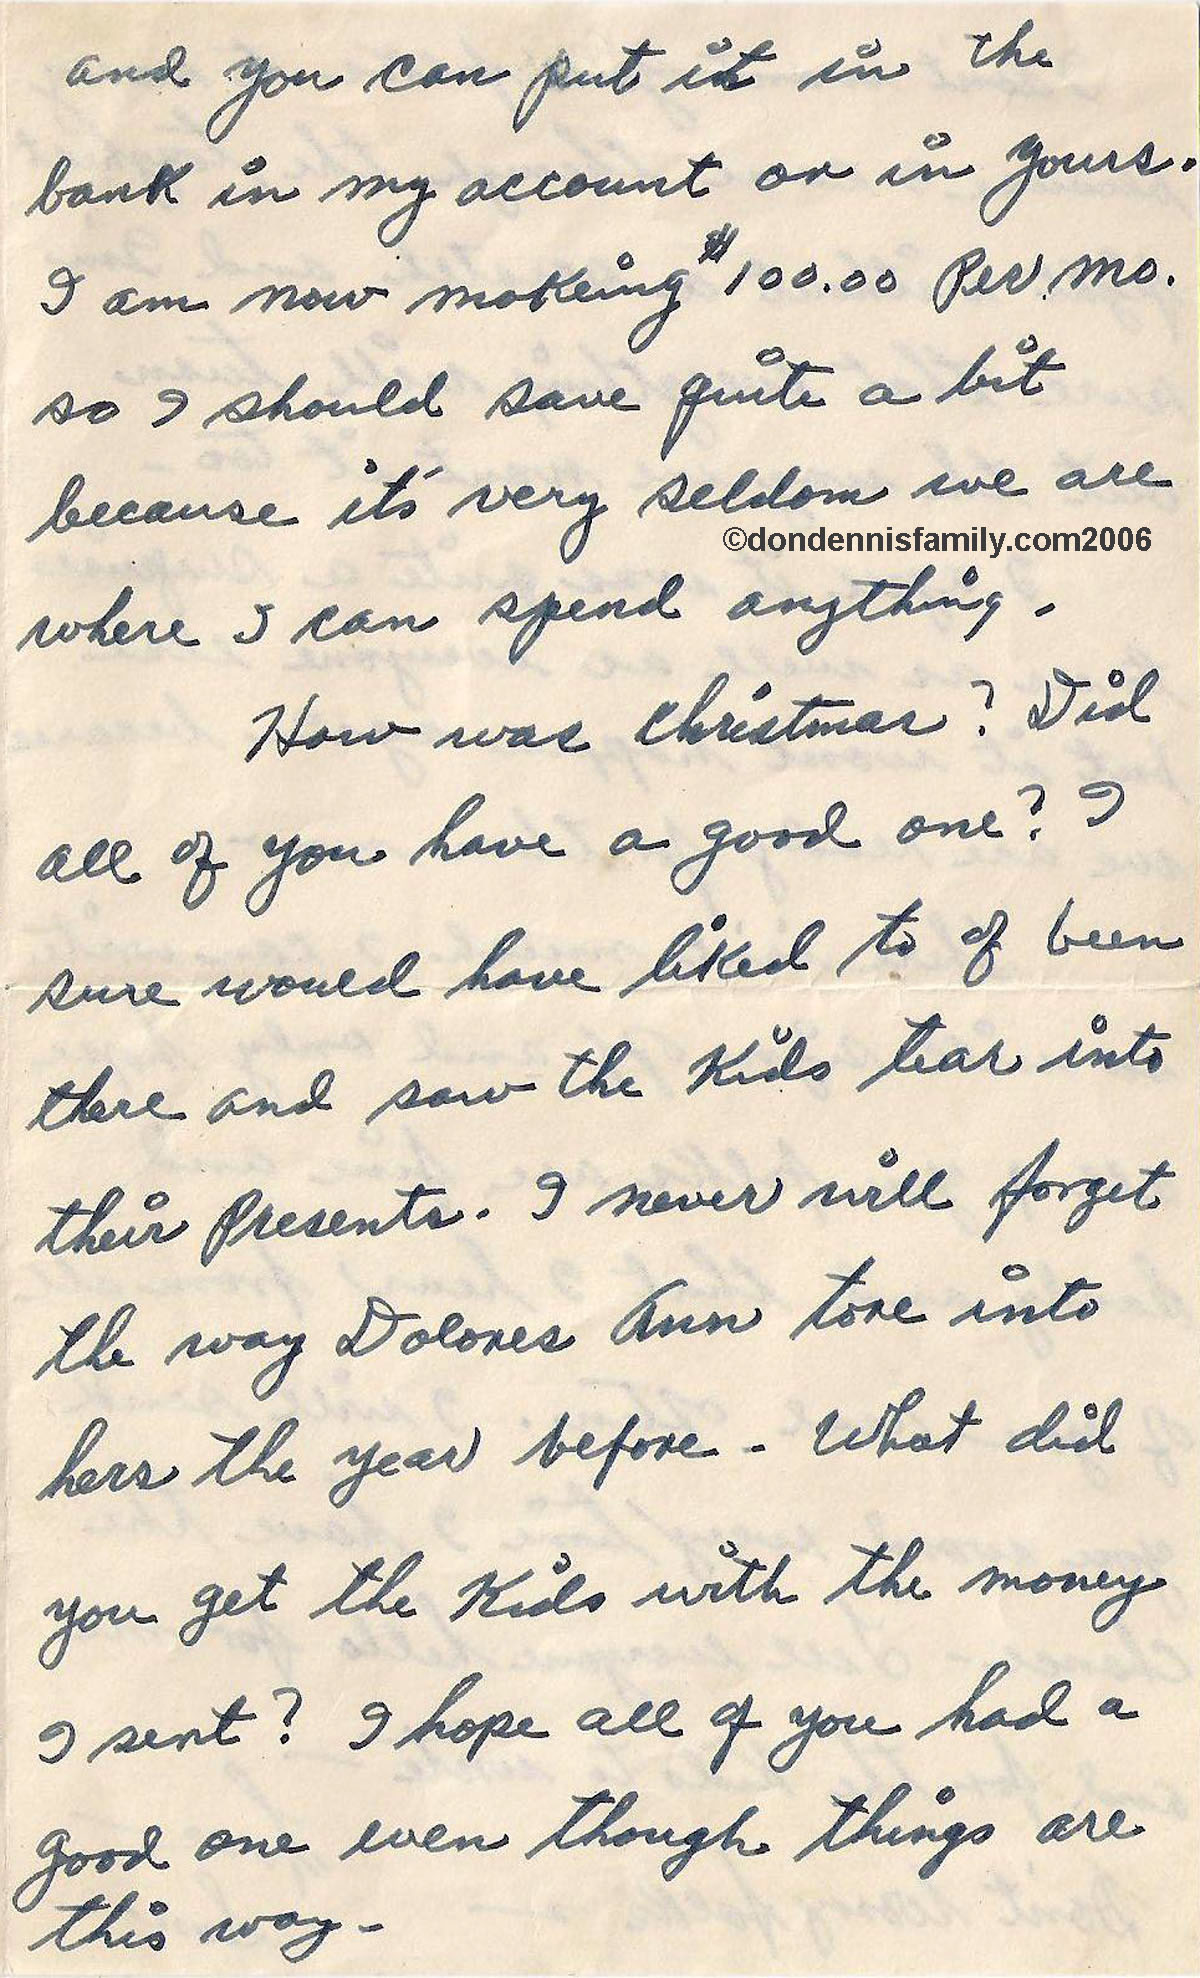 and you can put it in the
bank in my account or in yours.
I am now makeing $100.00 Per. mo.
so I should save quite a bit
because it's very seldom we are
©dondennisfamily.com2006
where I can spend anything.
How was Christmas? Did
all of you have a good one? I
sure would have liked to of been
there and saw the Kids tear into
their Presents. I never will forget
the way Dolores Ann tore into
hers the year before - What did
you get the Kids with the money
I sent? I hope all of you had a
good one even though things are
this way -